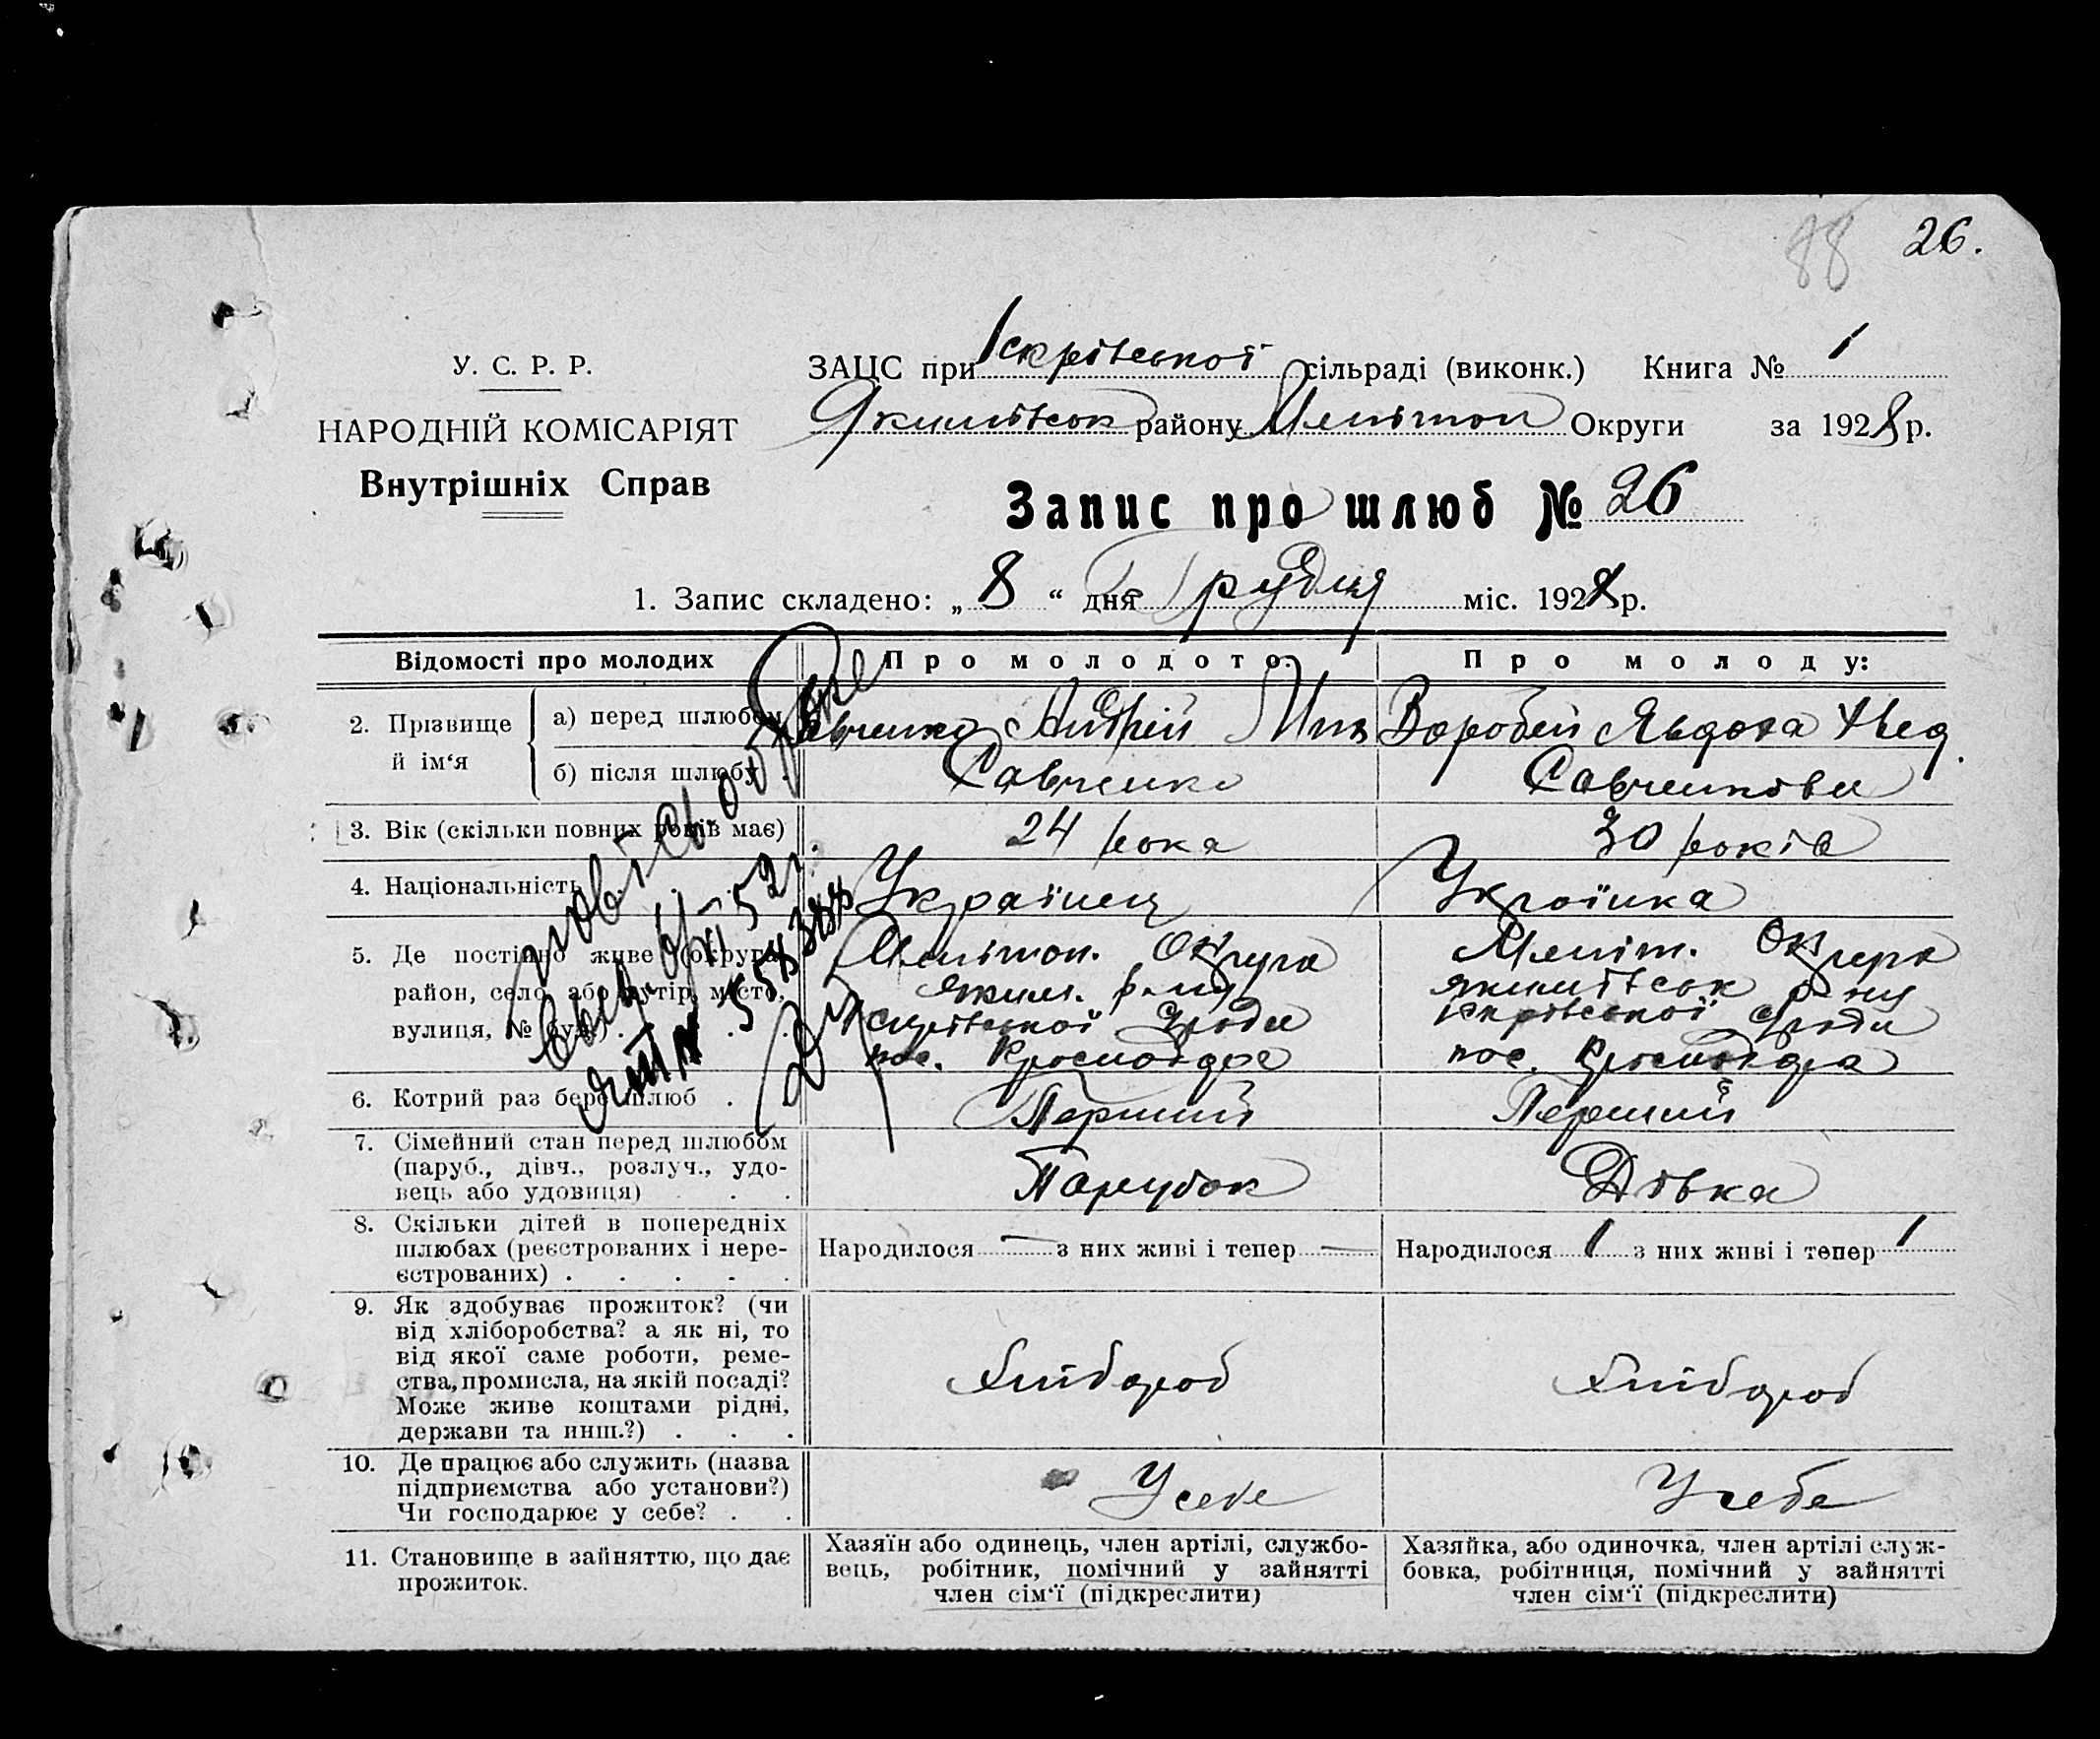 88 26.
У. С. Р. Р.
НАРОДНІЙ КОМІСАРІЯТ
Внутрішніх Справ
ЗАЦС при Іскрівської сільраді (виконк.) Книга № 1
Якимівськ району Мелітоп Округи за 1928 р.
Запис про шлюб № 26
1. Запис складено: „ 8 “ дня Грудня міс. 1928 р.
Відомості про молодих
Про молодого:
Про молоду:
2. Прізвище й ім‘я
а) перед шлюбом
Савченко Андрій Мих
Воробей Явдоха
б) після шлюбу .
Савченко
Савченкова
3. Вік (скільки повних років має)
24 рока
30 років
4. Національність
Українец
Українка
5. Де постійно живе (округа,
район, село, або хутір, місто,
вулиця, № буд.) . . . .
Мелітоп. Округа
Яким. р-ну
Іскрівської С/ради
пос.
Меліт. Округа
Якимівськ р-ну
Іскрівської С/ради
пос.
6. Котрий раз бере шлюб .
Перший
Перший
7. Сімейний стан перед шлюбом
(паруб., дівч., розлуч., удо-
вець або удовиця) . . .
Парубок
Дівка
8. Скільки дітей в попередніх
шлюбах (реєстрованих і нере-
єстрованих) . . . . .
Народилося — з них живі і тепер —
Народилося 1 з них живі і тепер 1
9. Як здобуває прожиток? (чи
від хліборобства? а як ні, то
від якої саме роботи, реме-
ства, промисла, на якій посаді?
Може живе коштами рідні,
держави та инш.?) . . .
Хлібороб
Хлібороб
10. Де працює або служить (назва
підприємства або установи?)
Чи господарює у себе? . .
У себе
У себе
11. Становище в зайняттю, що дає
прожиток.
Хазяїн або одинець, член артілі, службо-
вець, робітник, помічний у зайнятті
член сім‘ї (підкреслити)
Хазяйка, або одиночка, член артілі служ-
бовка, робітниця, помічний у зайнятті
член сім‘ї (підкреслити)